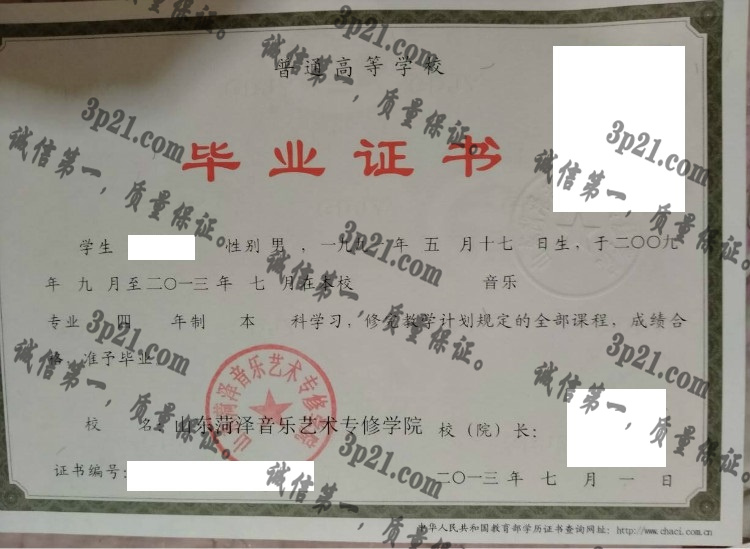 普通高等学校
毕业证书
学生 性别 男 ，一九九一 年 五 月十七 日生，于二〇〇九
年 九 月至二〇一三年 七 月在本校 音乐
专业 四 年制 本 科学习，修完教学计划规定的全部课程，成绩合
格 准予毕业
校 名：山东菏泽音乐艺术专修学院 校（院）长：
证书编号： 二〇一三年 七 月 一 日
中华人民共和国教育部学历证书查询网址：http://www.chaci.com.cn
山东菏泽音乐艺术专修学院
3p21.com
诚信第一，质量保证。
3p21.com
诚信第一，质量保证。
3p21.com
诚信第一，质量保证。
3p21.com
诚信第一，质量保证。
3p21.com
诚信第一，质量保证。
3p21.com
诚信第一，质量保证。
3p21.com
诚信第一，质量保证。